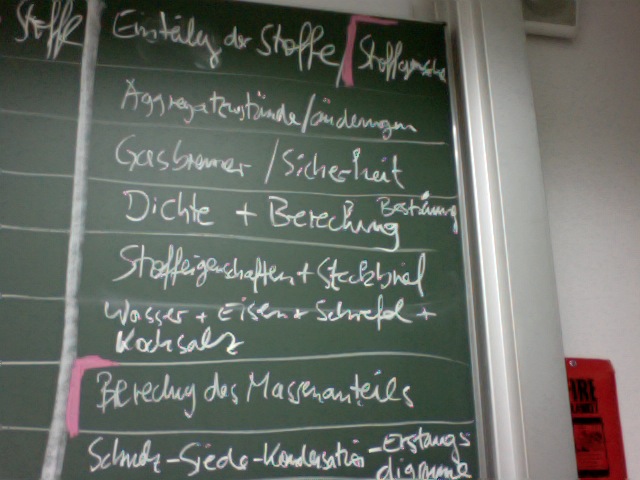 Stoffe
Einteilg der Stoffe / Stoffgemische
Aggregatzustände/änderungen
Gasbrenner / Sicherheit
Dichte + Berechung Bestimung
Stoffeigenschaften + Steckbrief
Wasser + Eisen + Schwefel +
Kochsalz
Berechng des Massenanteils
Schmelz-Siede-Kondensation-Erstarrungs
diagramme
FIRE
BLANKET